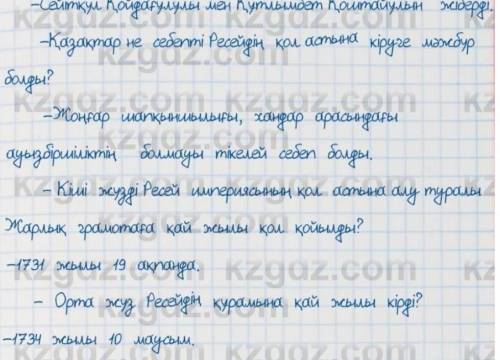 -Сейтқұл Қойдағұлұлы мен Құтлымбет Қоштайұлын жіберді.
-Қазақтар не себепті Ресейдің қол астына кіруге мәжбүр
болды?
-Жоңғар шапқыншылығы, хандар арасындағы
ауызбіршіліктің болмауы тікелей себеп болды.
- Кіші жүзді Ресей империясының қол астына алу туралы
Жарлық грамотаға қай жылы қол қойылды?
-1731 жылы 19 ақпанда.
- Орта жүз Ресейдің құрамына қай жылы кірді?
-1734 жылы 10 маусым.